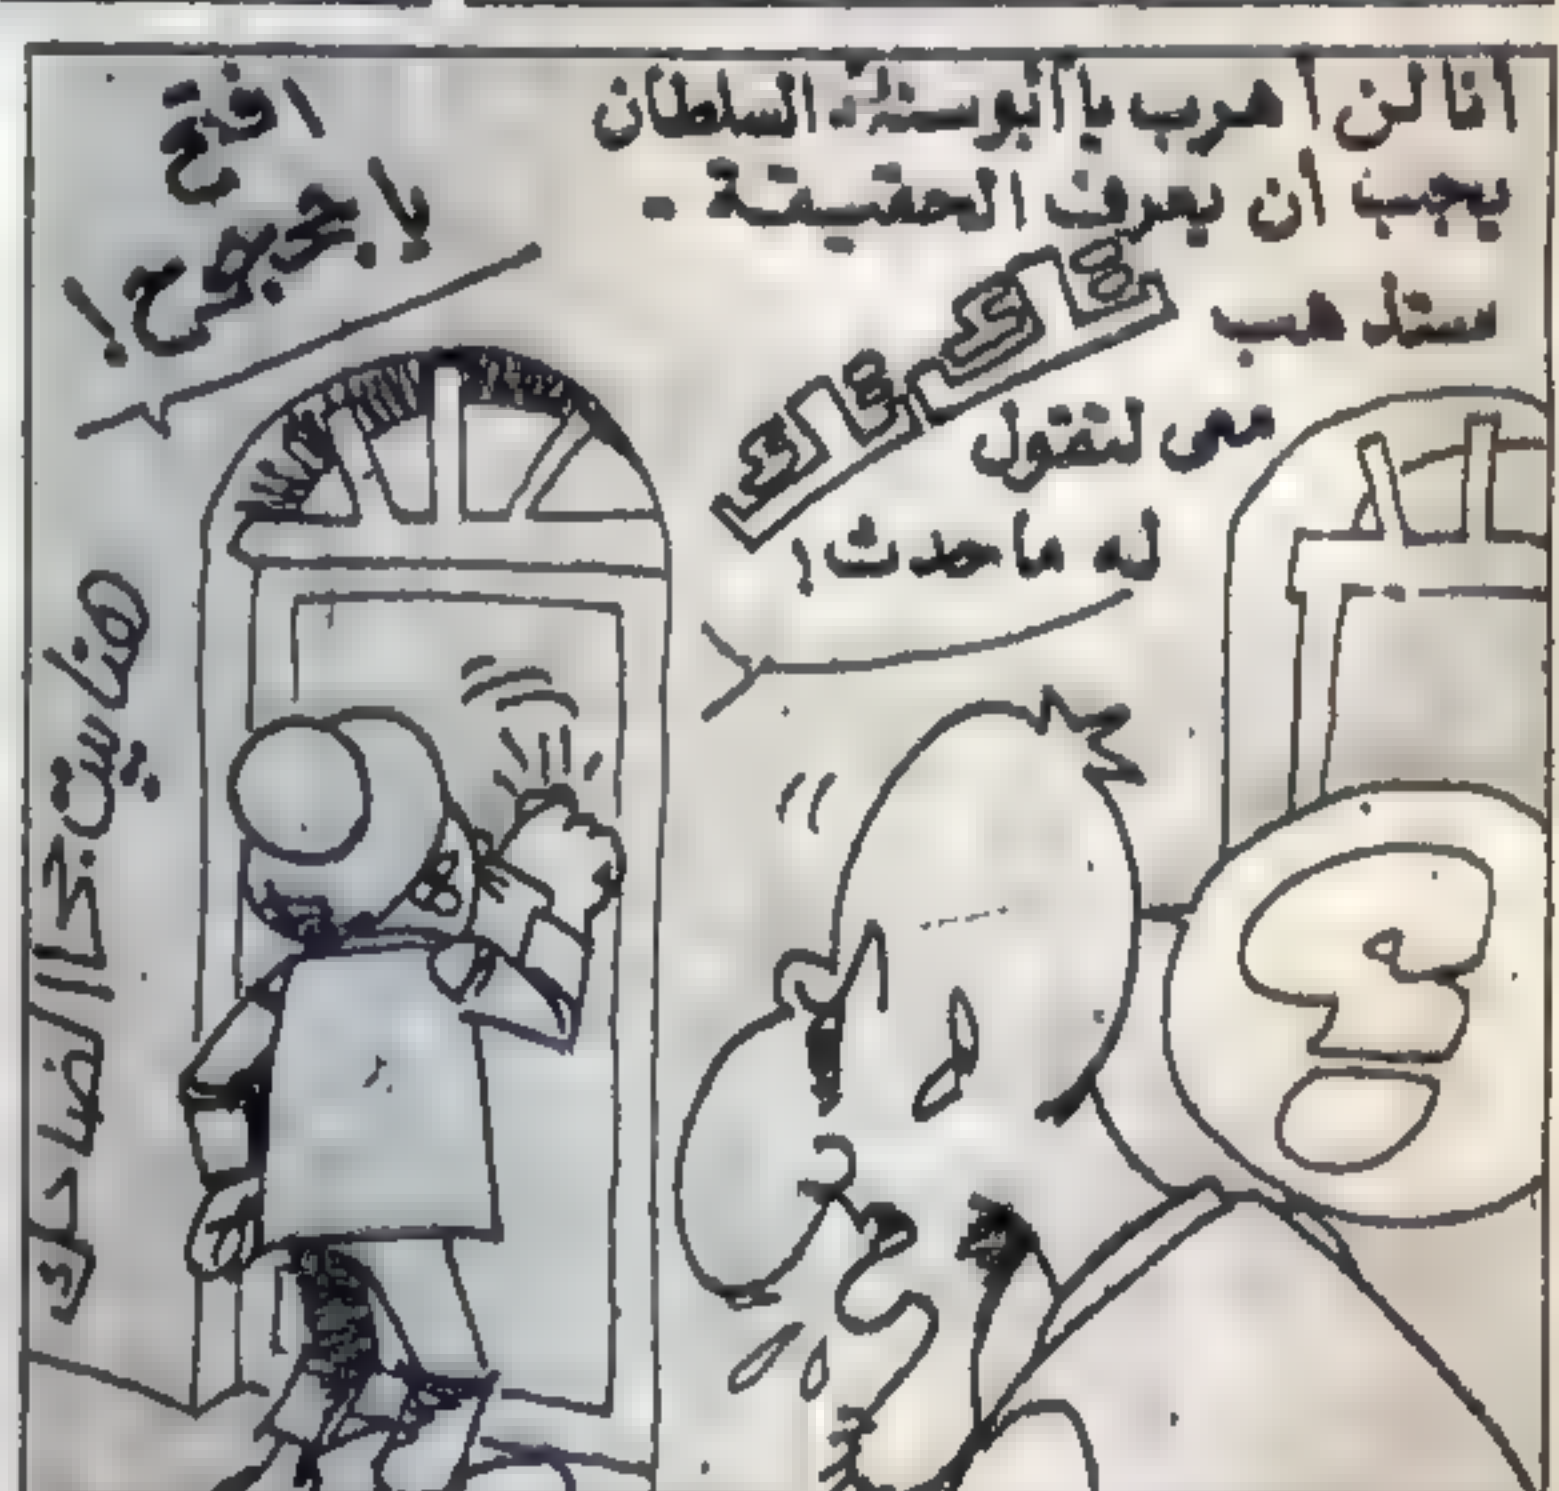 أنا لن أهرب يا أبو سنة السلطان
يجب أن يعرف الحقيقة -
ستذهب
معى لتقول
له ما حدث !
تاك تاك
افتح
يا جحجح !
هنا بيت جحا الضاحك